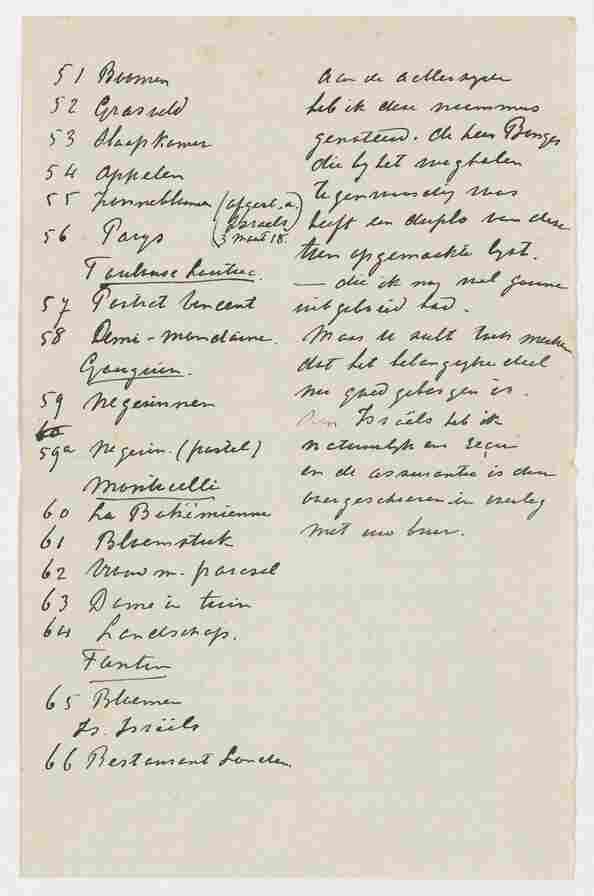 51 Boomen
52 Grasveld
53 Slaapkamer
54 Appelen
55 Zonnebloemen (afgest. a.
Israels
56 Parys 3 maart 18.)
Toulouse Lautrec.
57 Portret Vincent
58 Demi-mondaine.
Gauguin.
59 Negerinnen
60
59a Negerin. (pastel)
Monticelli
60 La Bohémienne
61 Bloemstuk
62 Vrouw m. parasol
63 Dame in tuin
64 Landschap.
Fantin
65 Bloemen
Is. Israëls
66 Restaurant Londen.
Aan de achterzyde
heb ik deze nummers
genoteerd. De heer
die by het weghalen
tegenwoordig was
heeft een duplo van deze
toen opgemaakte lyst.
— die ik nog wel gaarne
uitgebreid had.
Maar U zult toch merken
dat het belangryke deel
nu goed geborgen is.
Aan Israëls heb ik
natuurlyk een reçu
en de assurantie is dan
overgeschreven in overleg
met uw broer.